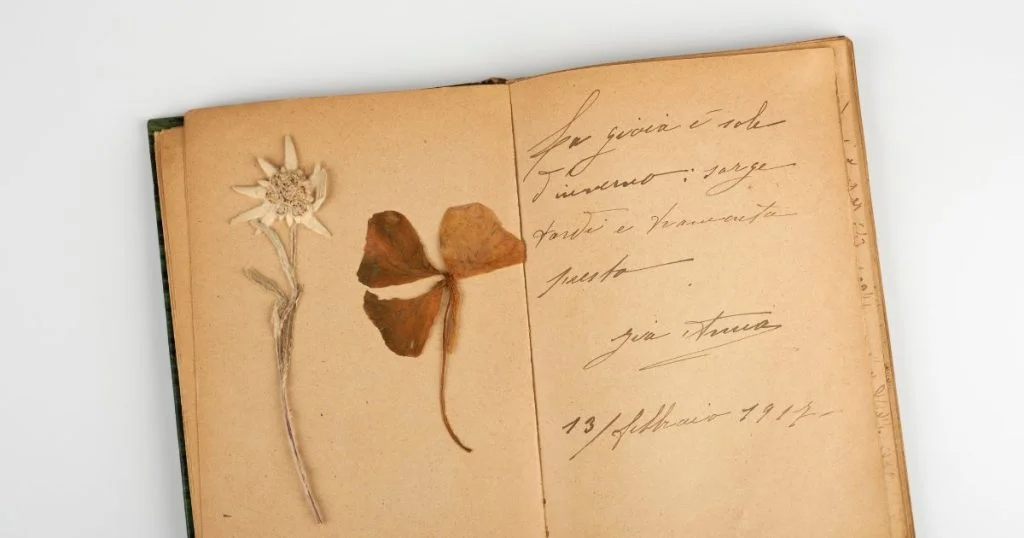 La gioia è sole
d'inverno: sorge
tardi e tramonta
presto
Zia Anna
13/febbraio 1917-